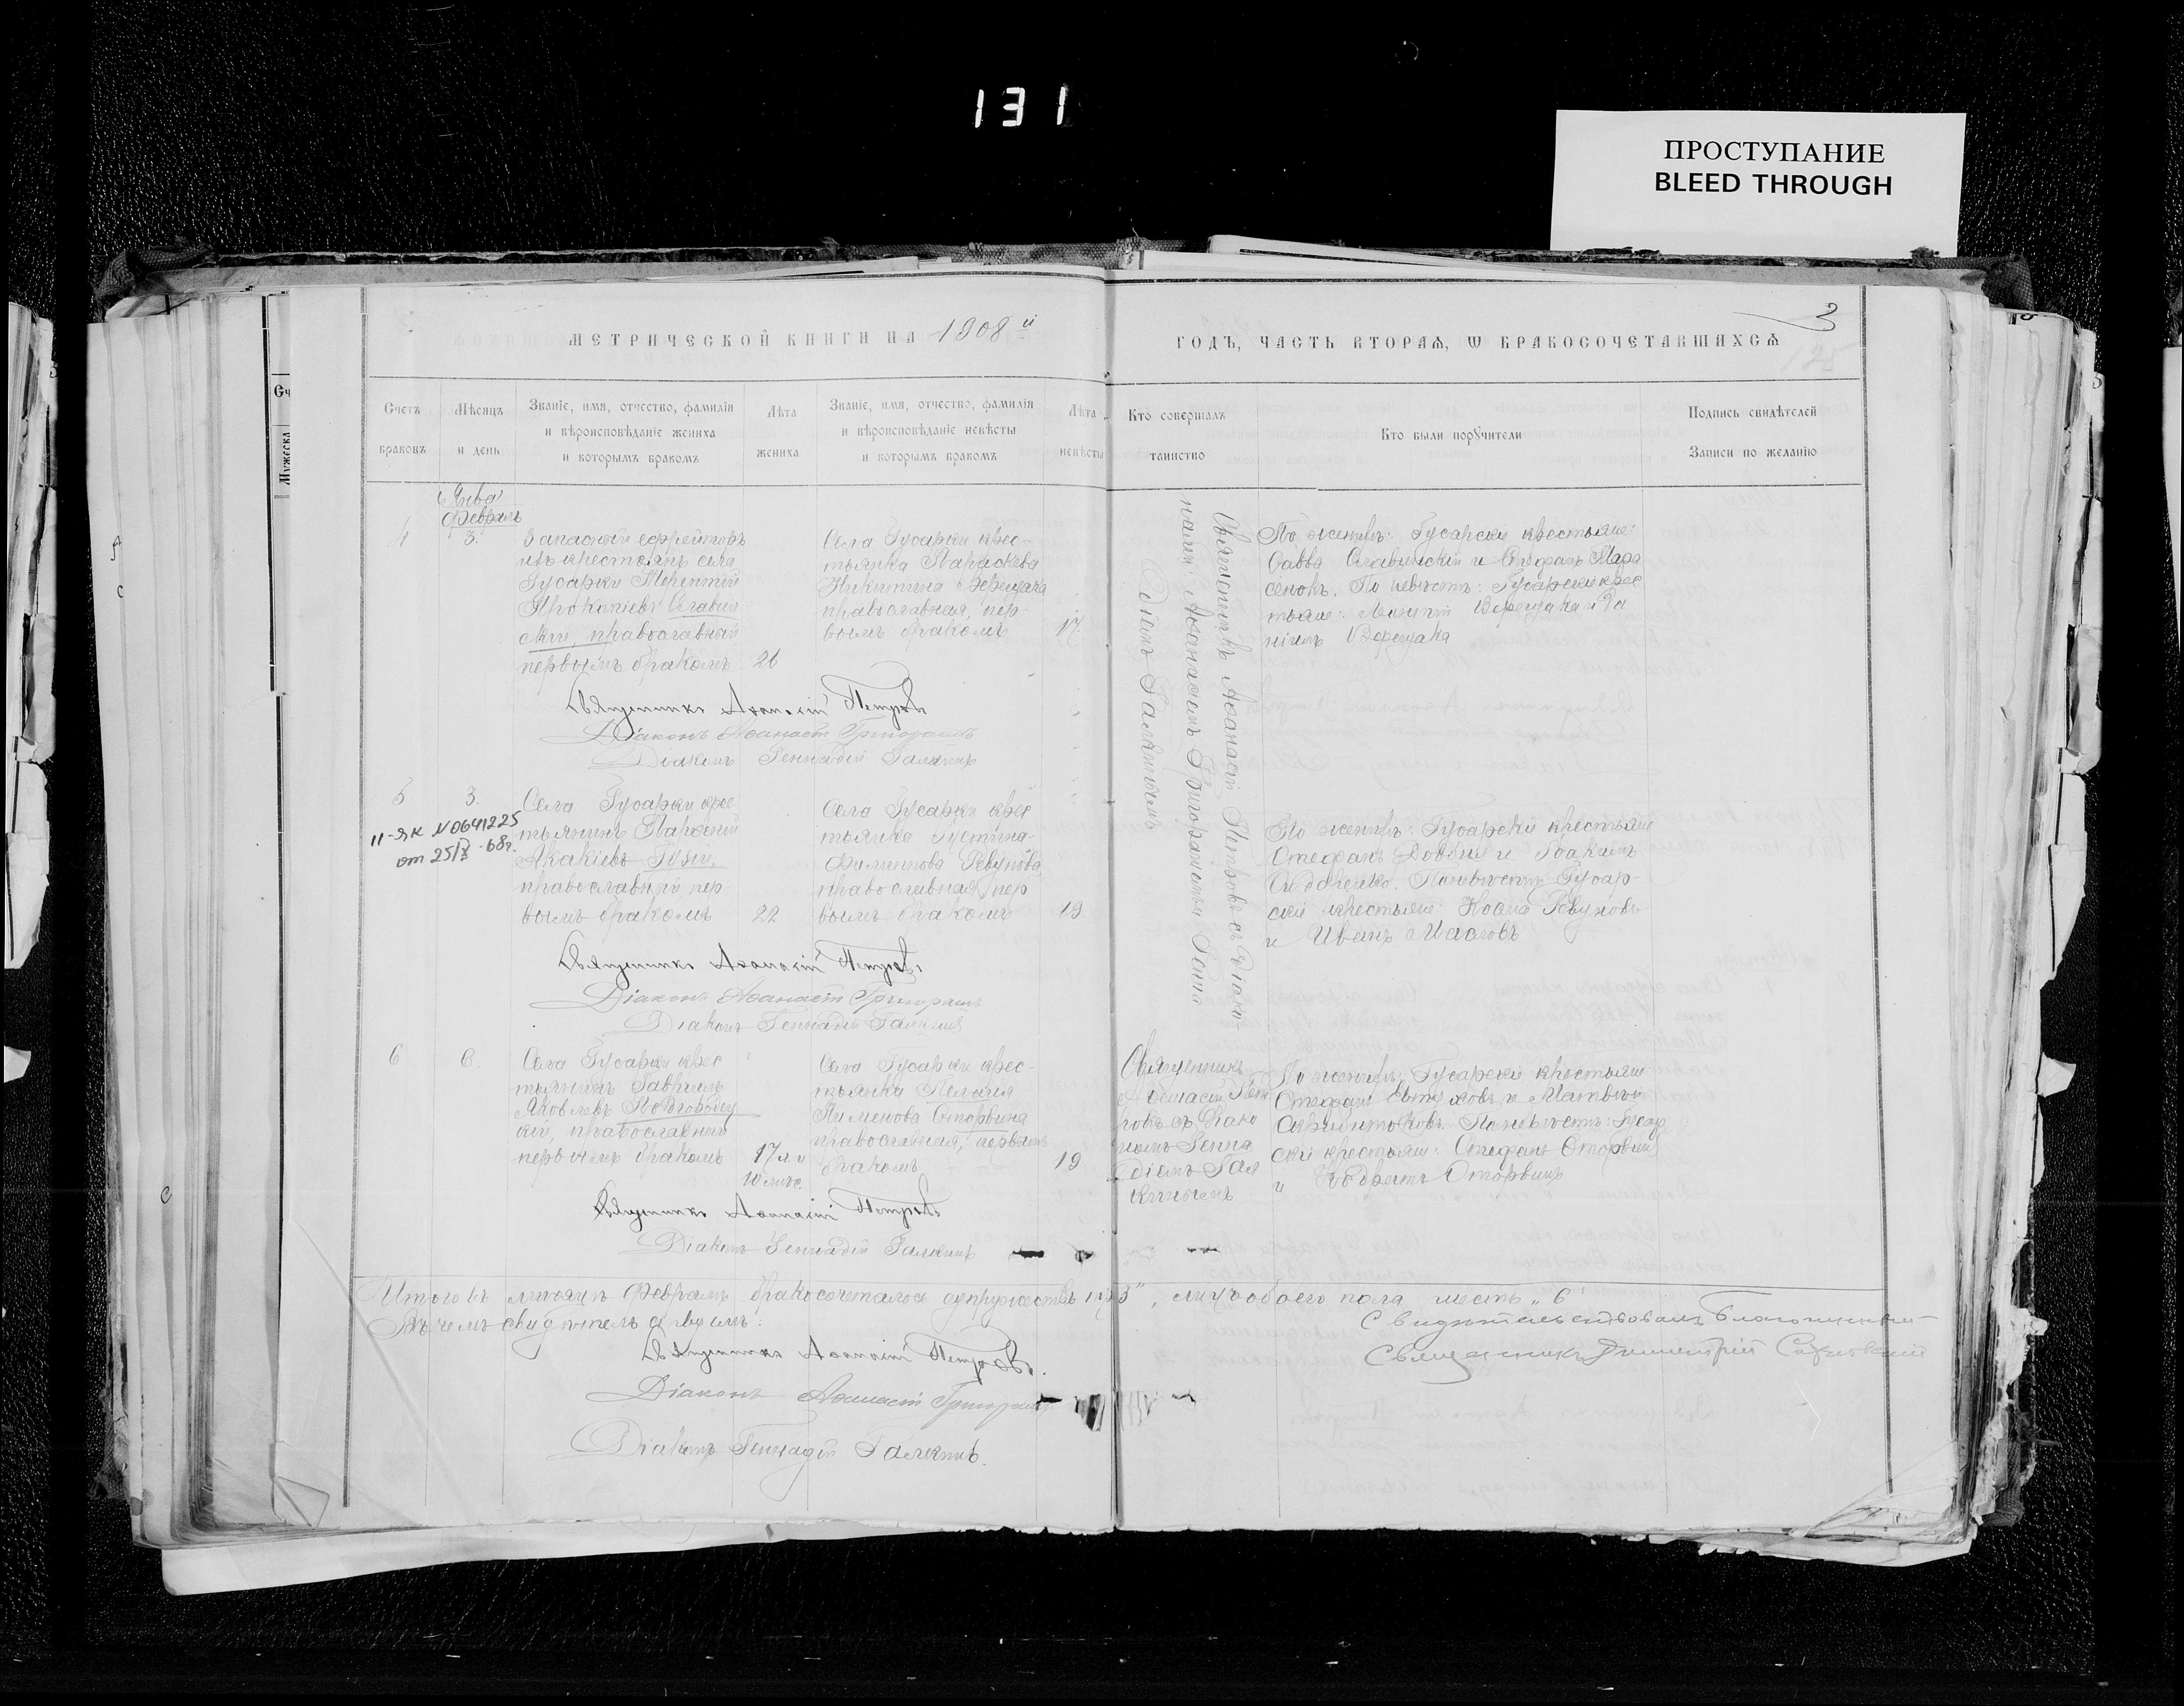 131
ПРОСТУПАНИЕ
BLEED THROUGH
3
МЕТРИЧЕСКОЙ КНИГИ НА 1908 й
ГОДЪ, ЧАСТЬ ВТОРАѦ, Ѡ БРАКОСОЧЕТАВШИХСѦ
Счетъ
браковъ
Мѣсяцъ
и день
Званіе, имя, отчество, фамилія
и вѣроисповѣданіе жениха
и которымъ бракомъ
Лѣта
жениха
Званіе, имя, отчество, фамилія
и вѣроисповѣданіе невѣсты
и которымъ бракомъ
Лѣта
невѣсты
Кто совершалъ
таинство
Кто были порꙋчители
Подпись свидѣтелей
Записи по желанію
Февраль
4
3.
Запасный ефрейторъ
изъ крестьянъ села
Гусарки Терентій
Прокопіевъ Славин
скій, православный
первымъ бракомъ
26
Села Гусарки крес-
тьянка Параскева
Никитина Верещака
православная, пер-
вымъ бракомъ
17
Священникъ Аѳанасій Петровъ съ діако
номъ Аѳанасіемъ Григорашемъ Генна
діемъ Галкинымъ
По женихѣ: Гусарскіе крестьяне:
Савва Славинскій и Стефанъ Мара
сенокъ. По невѣстѣ: Гусарскіе крес
тьяне: Верещака и Да
ніилъ Верещака
Священникъ Аѳанасій Петровъ
Діаконъ Аѳанасій Григорашъ
Діаконъ Геннадій Галкинъ
5
3.
11-ЯК N0641225
от 25/X -68г.
Села Гусарки крес
тьянинъ
Акакіевъ Гузій,
православный пер
вымъ бракомъ
22
Села Гусарки крес
тьянка Іустина
Филиппова Ревунова
православная, пер
вымъ бракомъ
19
По женихѣ: Гусарскіе крестьяне
Стефанъ Довбня и Іоакимъ
Сидоренко. По невѣстѣ Гусар-
скіе крестьяне: Ревуновъ
и Иванъ Масловъ
Священникъ Аѳанасій Петровъ
Діаконъ Аѳанасій Григорашъ
Діаконъ Геннадій Галкинъ
6
6.
Села Гусарки крес
тьянинъ Гавріилъ
Яковлевъ Подгородец
кій, православный
первымъ бракомъ
17 л. и
10 мѣс.
Села Гусарки крес-
тьянка Пелагія
Пименова Оторвина
православная, первымъ
бракомъ
19
Священникъ
Аѳанасій Пет
ровъ съ діако
номъ Генна
діемъ Гал
кинымъ
По женихѣ: Гусарскіе крестьяне
Стефанъ и Матвѣй
По невѣстѣ: Гусар
скіе крестьяне: Стефанъ Оторвинъ
и Кодратъ Оторвинъ
Священникъ Аѳанасій Петровъ
Діаконъ Геннадій Галкинъ
Итого въ мѣсяцѣ Февралѣ бракосочеталось супружествъ три „3“, лицъ обоего пола шесть „6“
Въ чемъ свидѣтельствуемъ:
Священникъ Аѳанасій Петровъ.
Діаконъ Аѳанасій Григорашъ
Діаконъ Геннадій Галкинъ.
Свидѣтельствовалъ Благочинный
Священникъ Димитрій